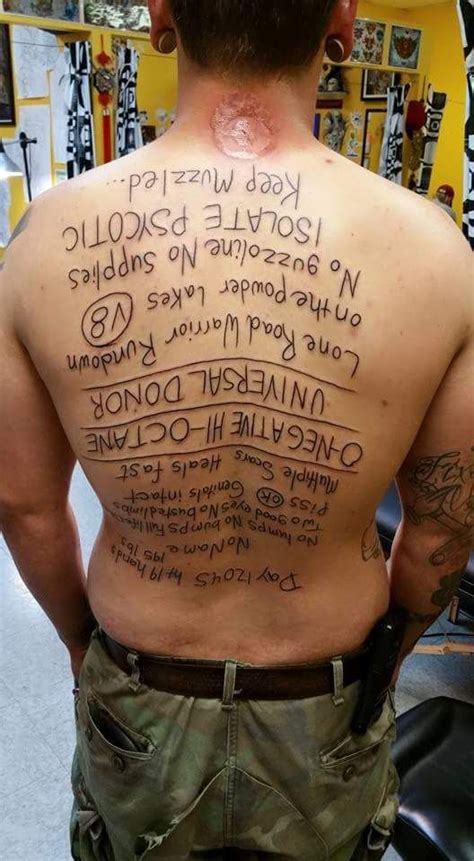 Day 12045 ht 19 hands
No Name 195 lbs
No lumps No bumps Full life
Two good eyes No busted limbs
Piss OK Genitals intact
Multiple Scars Heals fast
O-NEGATIVE HI-OCTANE
UNIVERSAL DONOR
Lone Road Warrior Rundown
on the powder Lakes V8
No guzzoline No Supplies
ISOLATE PSYCOTIC
Keep Muzzled...